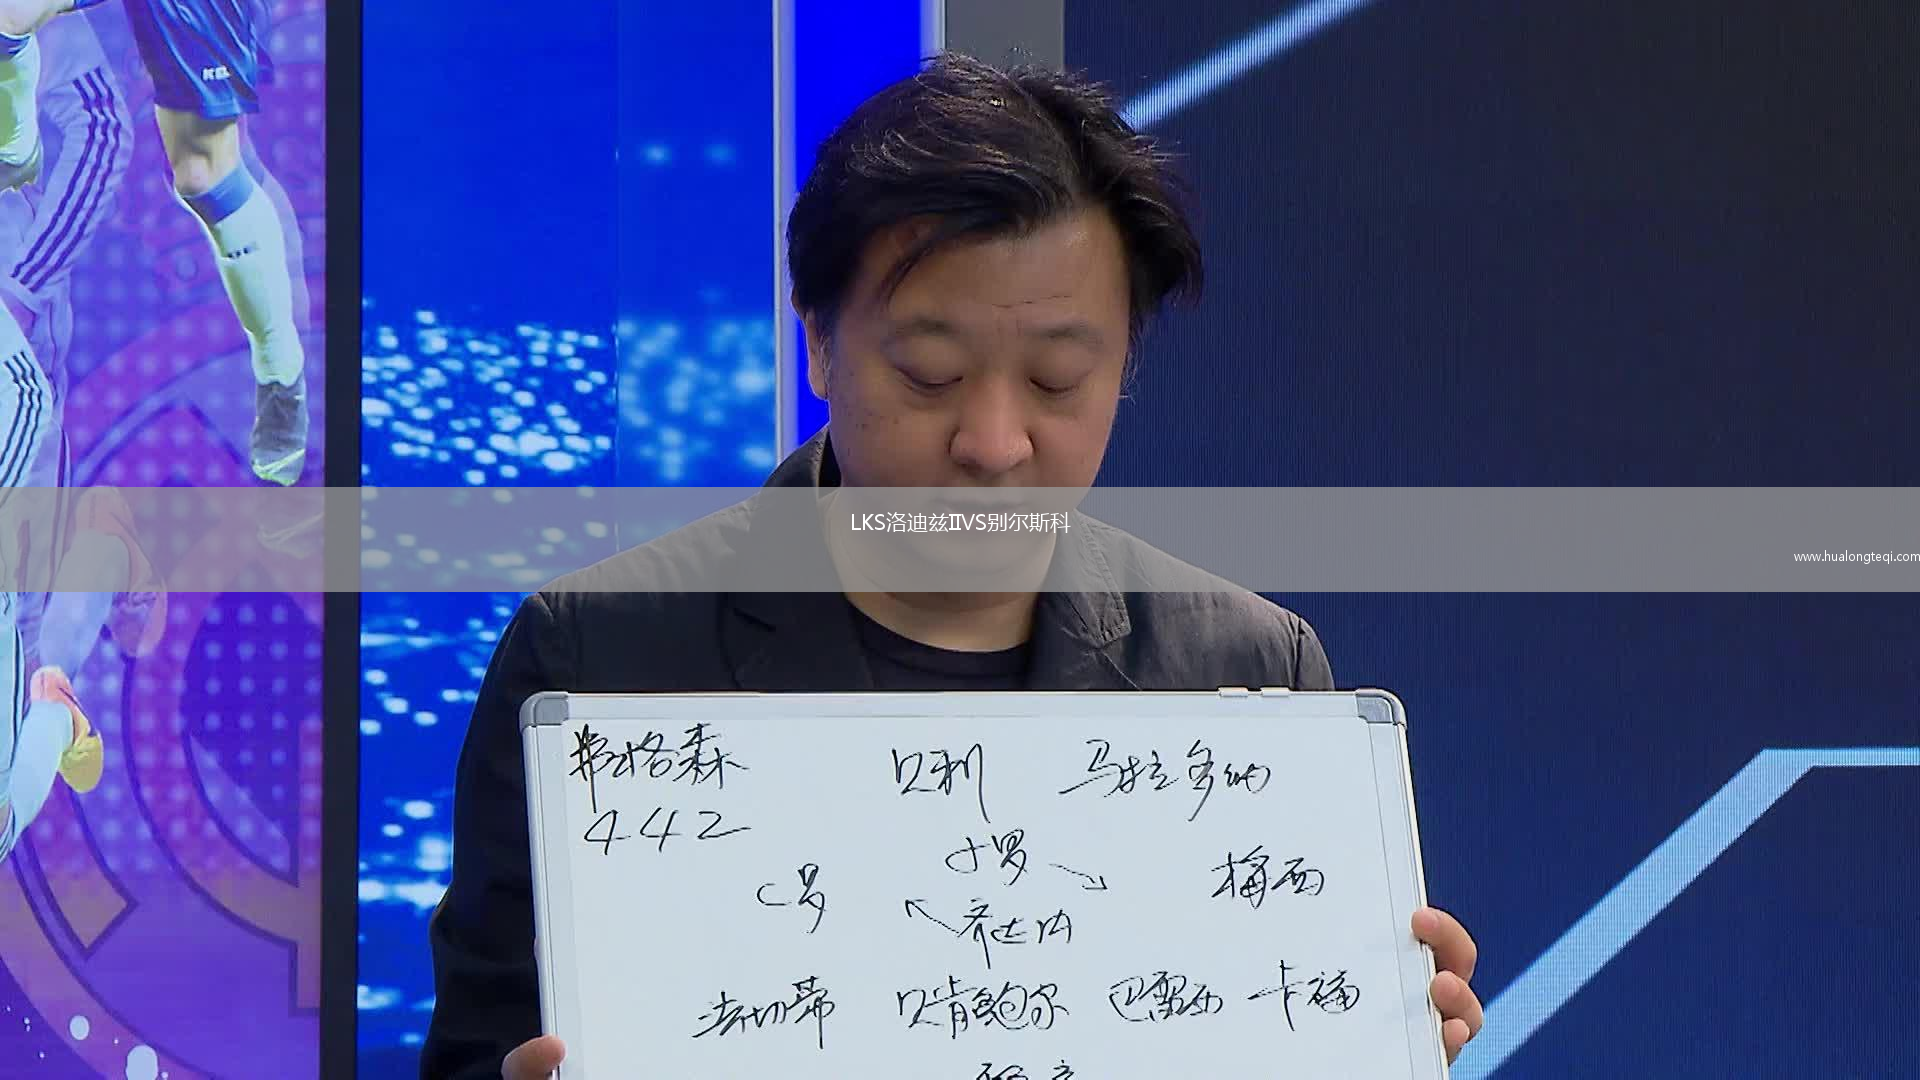 LKS洛迪兹ⅡVS别尔斯科
www.hualongteqi.com
弗格森 贝利 马拉多纳
442
小罗
C罗 梅西
齐达内
法切蒂 贝肯鲍尔 巴雷西 卡福